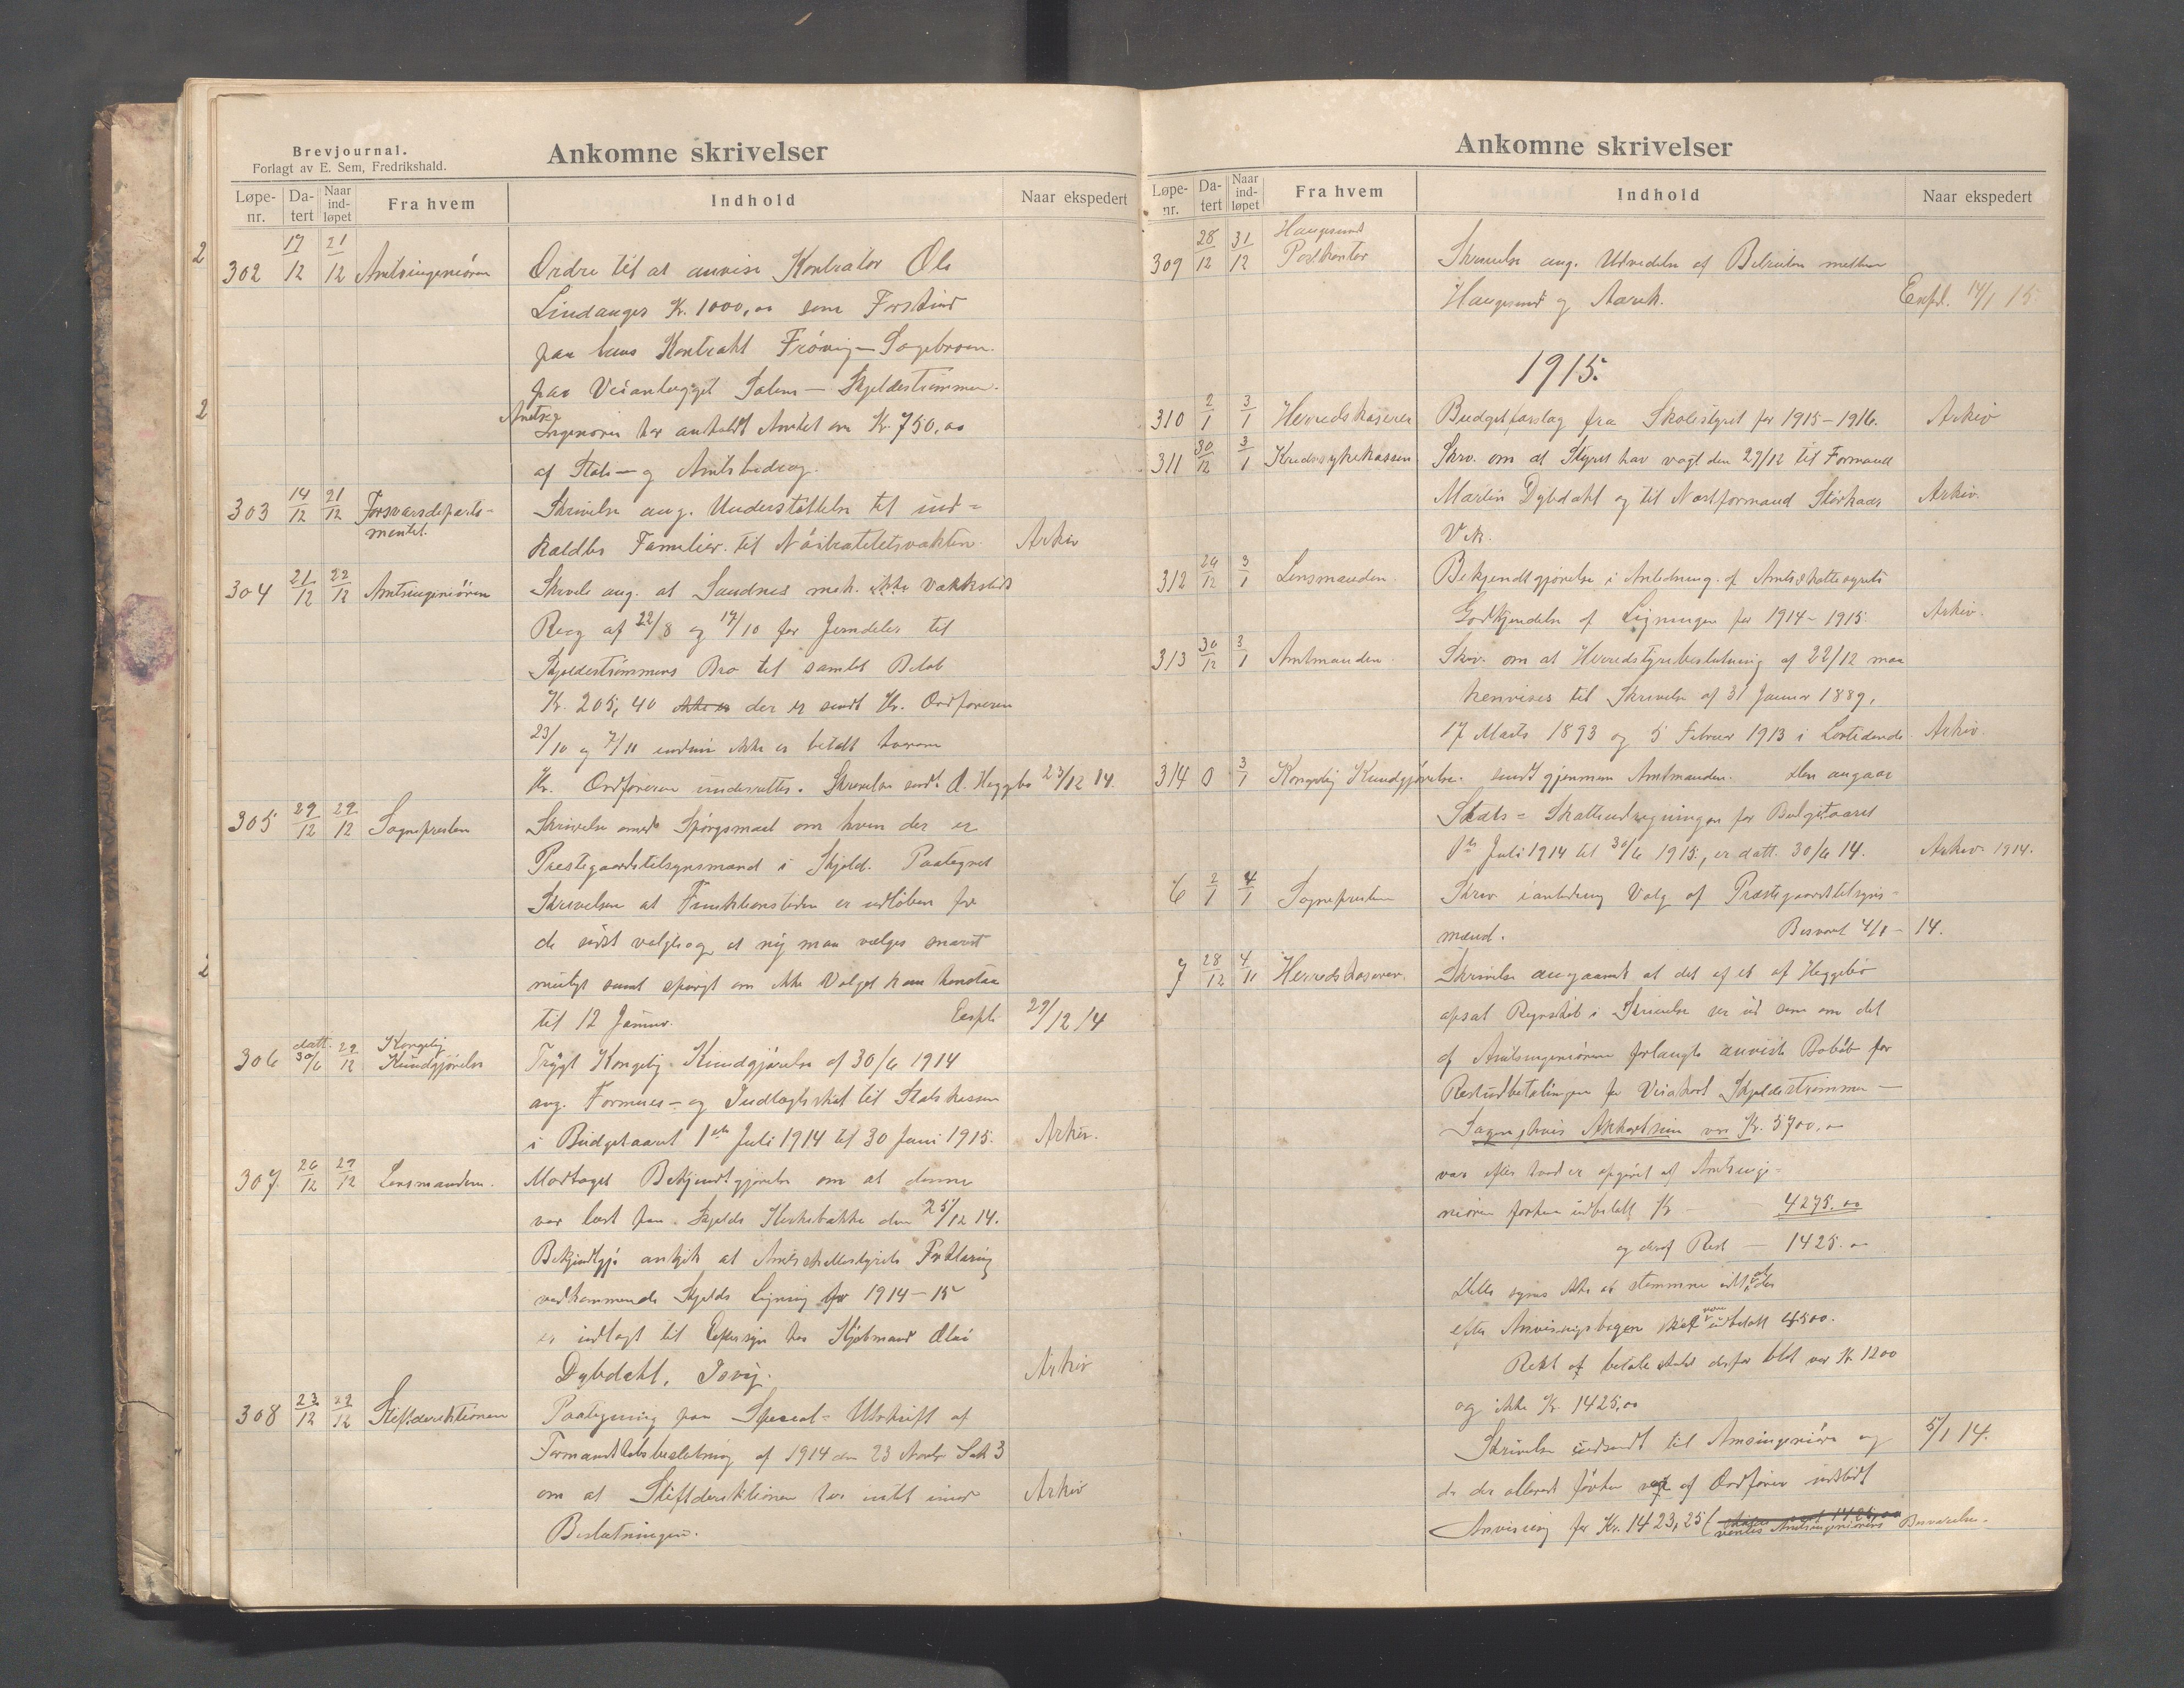 Brevjournal.
Forlagt av E. Sem, Fredrikshald.
Ankomne skrivelser
Løpe-nr. Da-tert Naar ind-løpet Fra hvem Indhold Naar ekspedert
302 17/12 21/12 Amtsingeniøren Ordre til at anvise Kontraktør Ole
Lindanger Kr. 1000,00 som Forskud
paa hans Kontrakt
paa Veianlægget Salen — Skjoldestrømmen.
Amts-
Ingeniøren har anholdt Amtet om Kr. 750,00
af Stats- og Amtsbidrag.
303 14/12 21/12 Forsvarsdeparte- Skrivelse ang. Understøttelse til ind-
mentet. kaldtes Familier til Nøitralitetsvakten. Arkiv
304 21/12 22/12 Amtsingeniøren ang. at Sandnes mek. Verksteds
Regg af 22/8 og 17/10 for Jerndeler til
Skjoldestrømmens Bro til samlet Beløb
Kr. 205,40 der er sendt Hr. Ordføreren
23/10 og 7/11 endnu ikke er betalt hvorom
Hr. Ordføreren underrettes. Skrivelse sendt A. Heggebø 23/12 14.
305 29/12 29/12 Sognepresten Skrivelse med Spørgsmaal om hvem der er
Prestegaardstilsynsmænd i Skjold. Paategnet
Skrivelsen at Funktionstiden er udløben for
de sidst valgte og at ny maa vælges snarest
muligt samt spørgt om ikke Valget kan henstaa
til 12 Januar. Exspd. 29/12 14
306 datt. 30/6 29/12 Kongelig
Kundgjørelse Trygt Kongelig Kundgjørelse af 30/6 1914
ang. Formues- og Indtægtsskat til Statskassen
i Budgetaaret 1ste Juli 1914 til 30 Juni 1915. Arkiv.
307 26/12 29/12 Lensmanden. Modtaget Bekjendtgjørelse om at denne
var læst paa Skjolds Kirkebakke den 25/12 14.
Bekjendtgj. angik at Amtsskattestyrets Forklaring
vedkommende Skjolds Ligning for 1914–15
er indlagt til Eftersyn hos Kjøbmand Olai
Dybdahl, Isvig. Arkiv
308 23/12 29/12 Stiftsdirektionen Paategning paa Special-Utskrift af
Formandskabsbeslutning af 1914 den 23 Novbr Sak 3
om at Stiftdirektionen har intet imod Arkiv
Beslutningen.
Ankomne skrivelser
Løpe-nr. Da-tert Naar ind-løpet Fra hvem Indhold Naar ekspedert
309 28/12 31/12 Haugesund
Postkontor Skrivelse ang. Utvidelse af Bilruten mellem
Haugesund og Aarek. Expd. 14/1 15
1915.
310 2/1 3/1 Herredskasserer Budgetforslag fra Skolestyret for 1915–1916. Arkiv
311 30/12 3/1 Kredssykekassen Skrv. om at Styret har valgt den 29/12 til Formand
Martin Dybdahl og til Næstformand Arkiv.
Vik.
312 29/12 3/1 Lensmanden. Bekjendtgjørelse i Anledning af Amtsskattestyrets
Godkjendelse af Ligningen for 1914–1915. Arkiv.
313 30/12 3/1 Amtmanden. Skrv. om at Herredstyrebeslutning af 22/12 maa
henvises til Skrivelse af 31 Januar 1889,
17 Marts 1893 og 5 Februar 1913 i Lovtidende. Arkiv.
314 0 3/1 Kongelig Kundgjørelse. sendt gjennem Amtmanden. Den angaar
Stats-Skatteudregningen for Budgetaaret
1ste Juli 1914 til 30/6 1915, er datt. 30/6 14. Arkiv 1914.
6 2/1 4/1 Sognepresten Skrv. i anledning Valg af Præstegaardstilsyns-
mænd. Besvart 4/1 – 14.
7 28/12 4/1 Herredskasserer. Skrivelse angaaende at det af af Heggebø
opsat Regnskab i Skrivelse ser ud som om det
af Amtsingeniøren forlangte anviste Beløb for
Restudbetalingen for Skjoldestrømmen —
hvis Akkordsum var Kr. 5700,00
var efter hvad er opgivet af Amtsinge-
niøren forhen udbetalt Kr — 4275.00
og deraf Rest — 1425.00
Dette synes ikke at stemme idet der
efter Anvisningsbogen skal være udbetalt 4500.
Rest at betale derfor blot var Kr. 1200
og ikke Kr. 1425,00
Skrivelse indsendt til Amsingeniøren og 5/1 14.
da der allerede forhen var af Ordfører udstedt
Anvisning for Kr. 1423,25 ( ventes Amtsingeniørens Besvarelse.